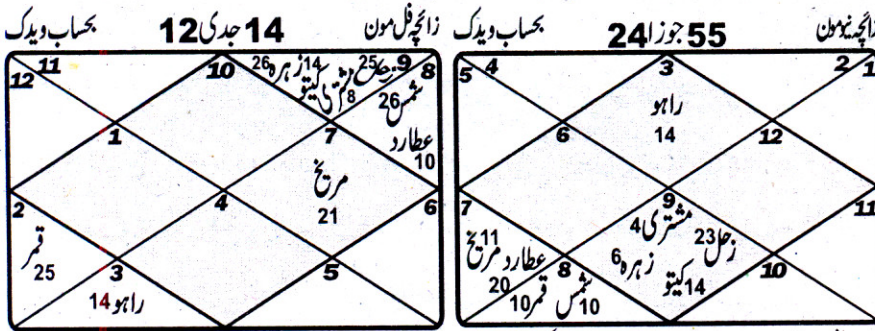 زائچہ نیومون 55 جوزا 24 بحساب ویدک
1
2
3
4
5
راہو
14
6
12
7
9
11
مشتری 4
زحل 23
زہرہ 6
کیتو 14
مریخ 11
عطارد
20
8
10
شمس 10
قمر 10
زائچہ فل مون 14 جدی 12 بحساب ویدک
8
9
10
11
12
زحل 25
مشتری 8
کیتو 14
زہرہ 26
شمس
26
عطارد
10
7
1
مریخ
21
2
4
6
قمر
25
3
5
راہو 14